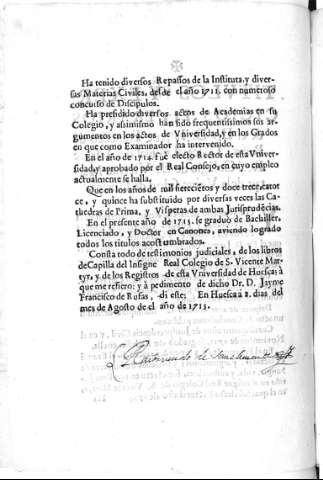 Ha tenido diversos Repassos de la Instituta, y diver-
sas Materias Civiles, desde el año 1711. con numeroso
concurso de Discipulos.
Ha presidido diversos actos de Academias en su
Colegio, y assimismo han sido frequentissimos sus ar-
gumentos en los actos de Vniversidad, y en los Grados
en que como Examinador ha intervenido.
En el año de 1714. fue electo Rector de esta Vniver-
sidad, y aprobado por el Real Consejo, en cuyo empleo
actualmente se halla.
Que en los años de mil setecietos y doce trece, cator
ce, y quince ha substituido por diversas veces las Ca-
thedras de Prima, y Visperas de ambas Jurisprudẽcias.
En el presente año de 1715. se graduò de Bachiller,
Licenciado, y Doctor en Canones, aviendo logrado
todos los titulos acostumbrados.
Consta todo de testimonios judiciales, de los libros
de Capilla del Insigne Real Colegio de S. Vicente Mar-
tyr, y de los Registros de esta Vniversidad de Huesca: à
que me refiero: y à pedimento de dicho Dr. D. Jayme
Francisco de Rufas, di este; En Huesca à 2. dias del
mes de Agosto de el año de 1715.
Raimundo de